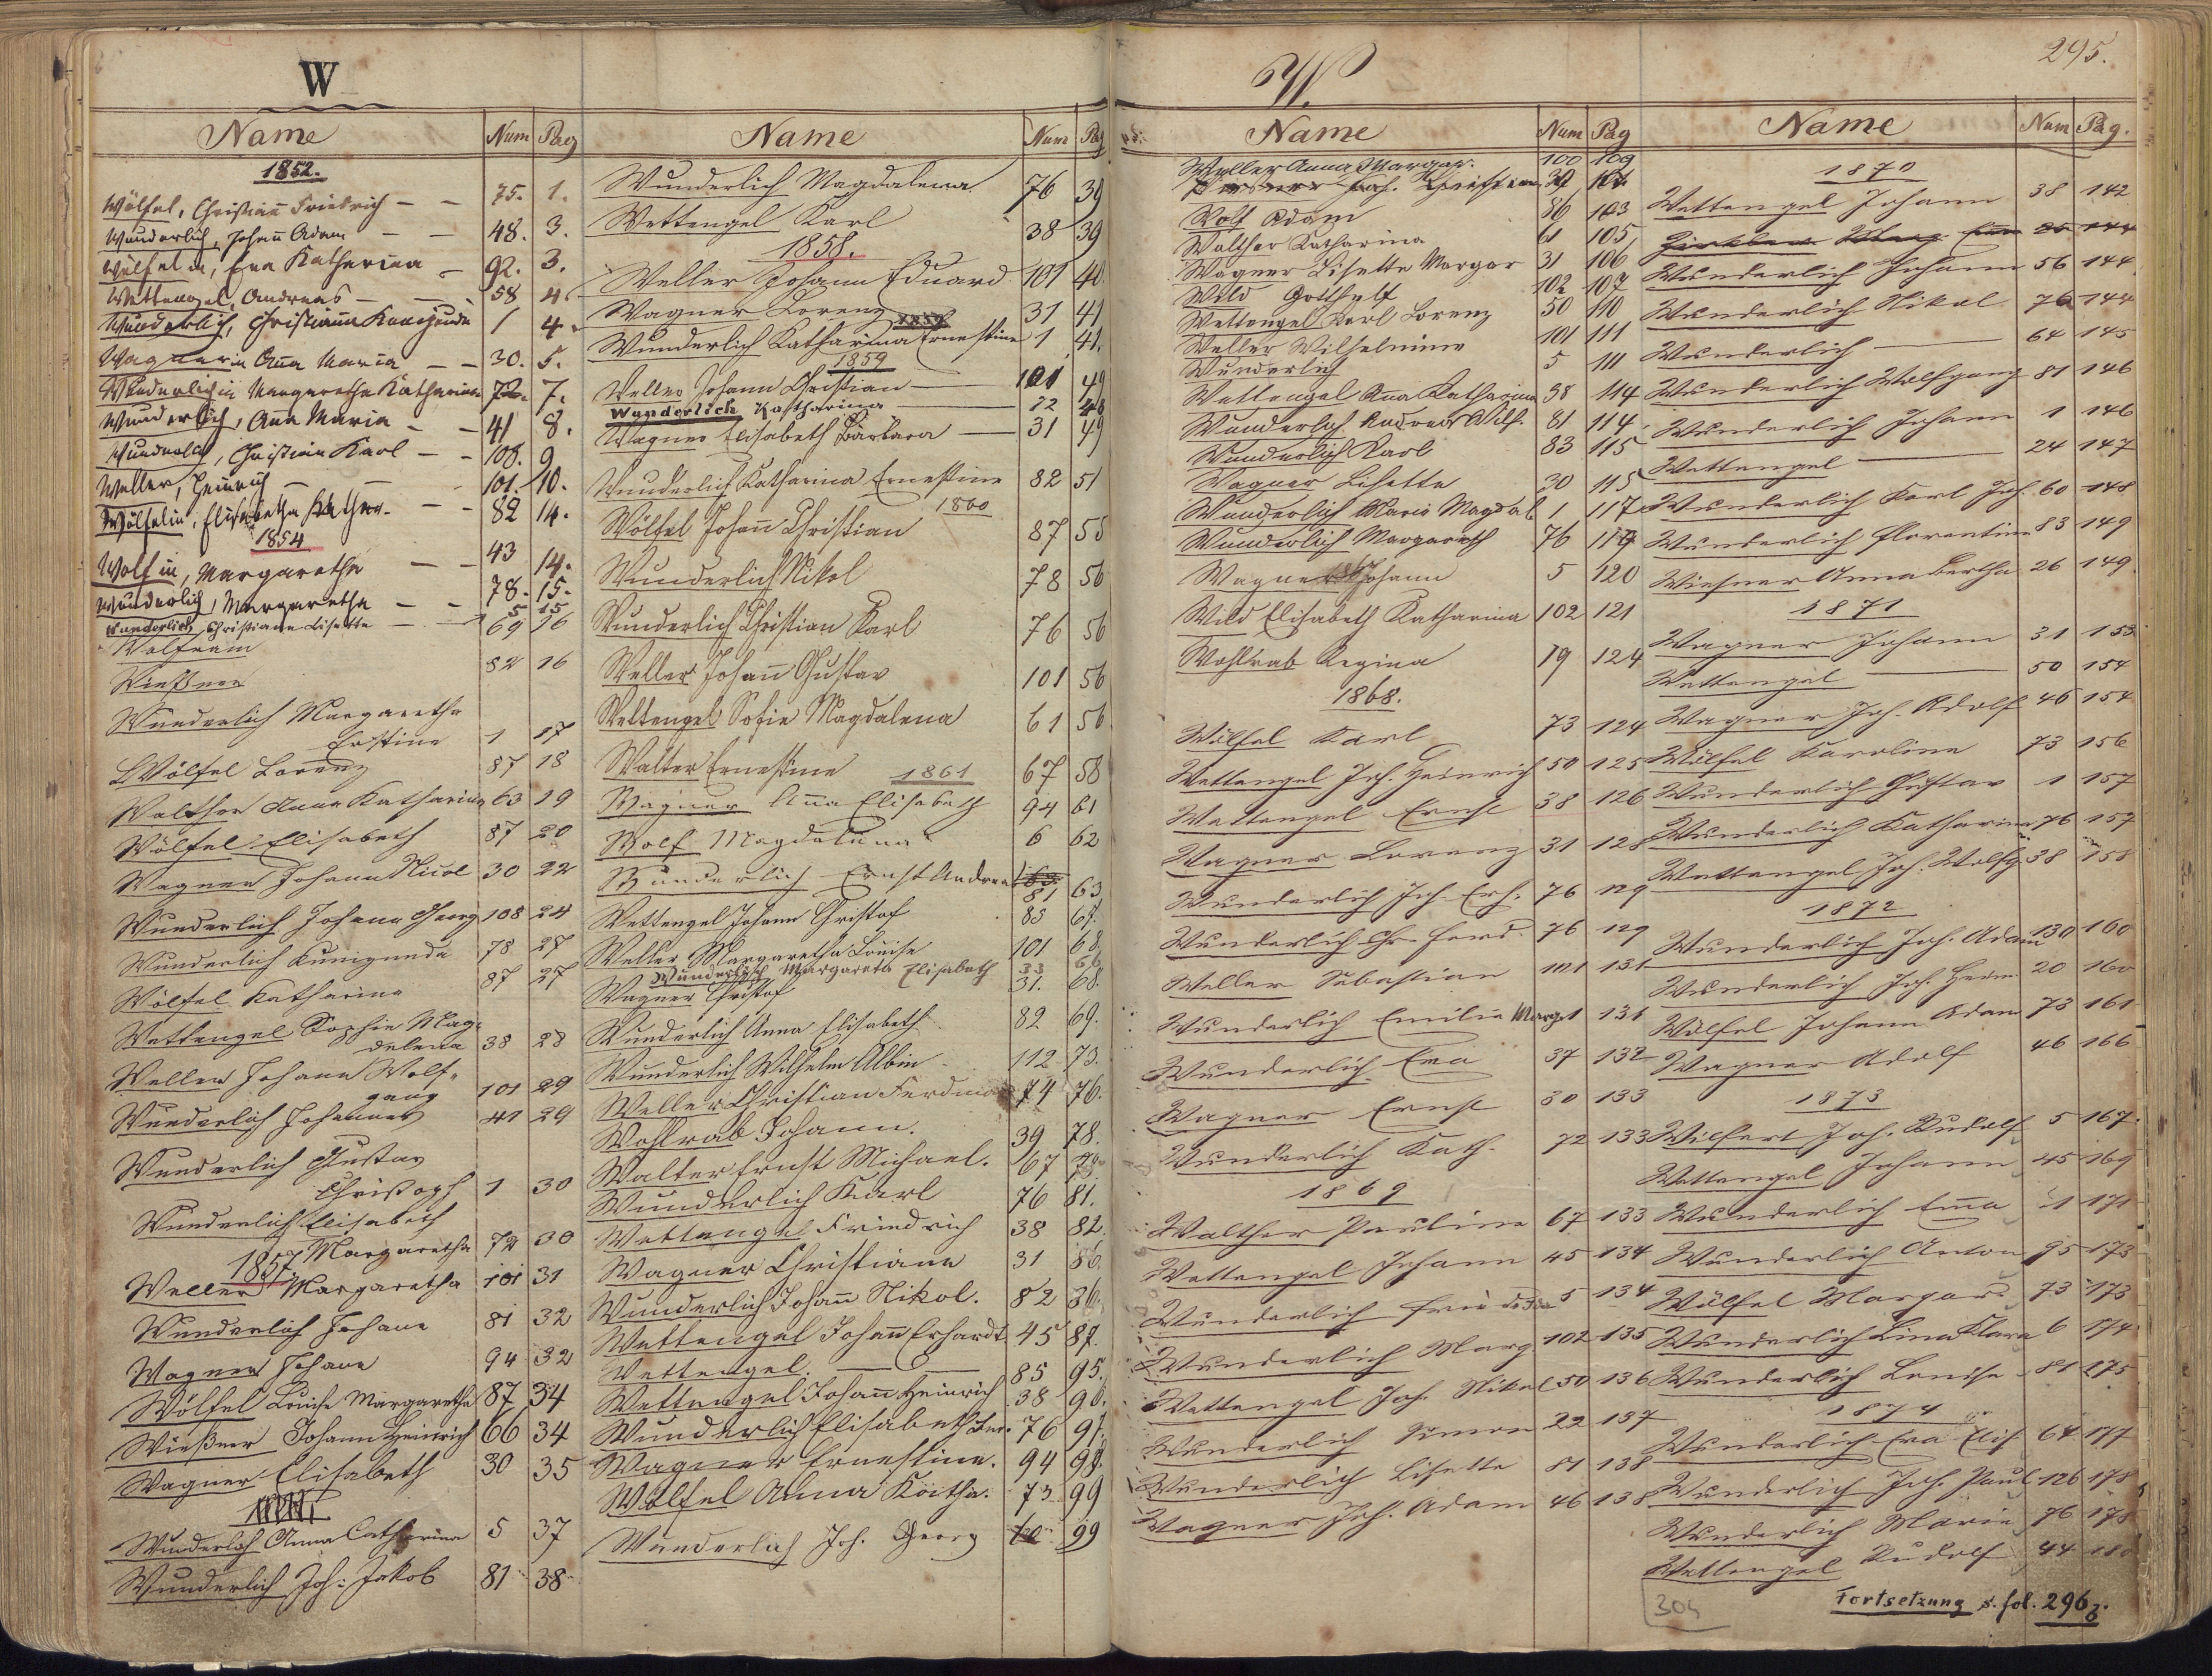 W
Name Num Pag
1852.
Wölfel, Christian Friedrich — — 75. 1.
Wunderlich, Johann Adam — — 48. 3.
Wölfel in, Eva Katharina — 92. 3.
Wettengel, Andreas — — 58 4.
Wunderlich, Christiana Kunigunda 1 4.
Wagnerin Anna Maria — — 30. 5.
Wunderlichin Margaretha Katharina 72. 7.
Wunderlich, Anna Maria — — 41 8.
Wunderlich, Christian Karl — — 108. 9
Weller, Heinrich — — 101. 10.
Wölfelin, Elisabetha Kathar. — — 82 14.
1854
Wolf in, Margaretha — — 43 14.
Wunderlich, Margaretha — — 78. 15.
Wunderlich, Christiane Lisette — — 5 15
Wolfram 69 16
Wießner 82 16
Wunderlich Margaretha
Erstine 1 17
Wölfel Lorenz 87 18
Walther Anna Katharina 63 19
Wölfel Elisabeth 87 20
Wagner Johann Nicol 30 22
Wunderlich Johann Georg 108 24
Wunderlich Kunigunda 78 27
Wölfel Katharina 87 27
Wettengel Sophie Mag-
delena 38 28
Weller Johann Wolf-
gang 101 29
Wunderlich Johannes 41 29
Wunderlich Gustav
Christoph 1 30
Wunderlich Elisabeth
Margaretha 72 30
1857.
Weller Margaretha 101 31
Wunderlich Johann 81 32
Wagner Johann 94 32
Wölfel Louise Margaretha 87 34
Wießner Johann Heinrich 66 34
Wagner Elisabeth 30 35
Wunderlich Anna Catharina 5 37
Wunderlich Joh: Jakob 81 38
Name Num Pag
Wunderlich Magdalena 76 39
Wettengel Karl 38 39
1858.
Weller Johann Eduard 101 40
Wagner Lorenz 31 41
Wunderlich Katharina Ernestine 1 41.
1859
Weller Johann Christian — 101 49
Wunderlich Katharina — 72 48
Wagner Elisabeth Barbara — 31 49
Wunderlich Katharina Ernestine 82 51
1860
Wölfel Johann Christian 87 55
Wunderlich Nikol 78 56
Wunderlich Christian Karl 76 56
Weller Johann Gustav 101 56
Wettengel Sofie Magdalena 61 56
Walter Ernestine 67 58
1861
Wagner Anna Elisabeth 94 61
Wolf Magdalena 6 62
Wunderlich Ernst Andreas 81 63
Wettengel Johann Christof 85 67.
Weller Margaretha Louise 101 68.
Wunderlich Margareta Elisabeth 33 66
Wagner Christof 31. 68.
Wunderlich Anna Elisabeth 82 69.
Wunderlich Wilhelm Albin 112 73.
Weller Christian Ferdinand 74 76.
Wohlrab Johann. 39 78.
Walter Ernst Michael. 67
Wunderlich Karl 76 81.
Wettengel Friedrich 38 82
Wagner Christiane 31 86.
Wunderlich Johann Nikol. 82 86.
Wettengel Johann Erhardt 45 87.
Wettengel. — 85 95.
Wettengel Johann Heinrich 38 96.
Wunderlich Elisabeth 76 97.
Wagner Ernestine. 94 98.
Wölfel Anna Katha. 73 99
Wunderlich Joh. Georg 99
W.
295.
Name Num Pag
Weller Anna Margar. 100 109
Wolf Adam 86 103
Walther Katharina 61 105
Wagner Lisette Margar 31 106
Wild Gotthelf 102 107
Wettengel Karl Lorenz 50 110
Weller Wilhelmine 101 111
Wunderlich 5 111
Wettengel Anna Katharina 38 114
Wunderlich Andreas Wilh. 81 114
Wunderlich Karl 83 115
Wagner Lisette 30 115
Wunderlich Maria Magdal 1 117
Wunderlich Margareth 76 119
Wagner Johann 5 120
Wild Elisabeth Katharina 102 121
Wohlrab Regina 19 124
1868.
Wölfel Karl 73 124
Wettengel Joh. Heinrich 50 125
Wettengel Ernst 38 126
Wagner Lorenz 31 128
Wunderlich Joh. Erh. 76 129
Wunderlich Chr. Ferd. 76 129
Weller Sebastian 101 131
Wunderlich Emilie Marg. 1 131
Wunderlich Eva 37 132
Wagner Ernst 30 133
Wunderlich Kath. 72 133
1869
Walther Pauline 67 133
Wettengel Johann 45 134
Wunderlich 5 134
Wunderlich Marg 102 135
Wettengel Joh. Nikol 50 136
Wunderlich Simon 22 137
Wunderlich Lisette 81 138
Wagner Joh. Adam 46 138
Name Num Pag.
1870
Wettengel Johann 38 142
Wunderlich Johann 56 144
Wunderlich Nikol 76 144
Wunderlich — 64 145
Wunderlich Wolfgang 81 146
Wunderlich Johann 1 146
Wettengel — 24 147
Wunderlich Karl Joh. 60 148
Wunderlich Florentine 83 149
Wießner Anna Bertha 26 149
1871
Wagner Johann 31 153
Wettengel — 50 154
Wagner Joh. Adolf 46 154
Wölfel Karoline 73 156
Wunderlich Gustav 1 157
Wunderlich Katharina 76 157
Wettengel Joh. Wolfg. 38 158
1872
Wunderlich Joh. Adam 130 160
Wunderlich Joh. Herm. 20 160
Wölfel Johann Adam 73 161
Wagner Adolf 46 166
1873
Wilfert Joh. Rudolf 5 167.
Wettengel Johann 45 169
Wunderlich Emma 1 171
Wunderlich Anton 95 173
Wölfel Margar. 73 173
Wunderlich Lina Klara 6 174
Wunderlich Louise 81 175
1874
Wunderlich Eva Elis. 64 177
Wunderlich Joh. Paul 126 178
Wunderlich Marie 76 178
Wettengel Rudolf 44 180
304
Fortsetzung s. fol. 296